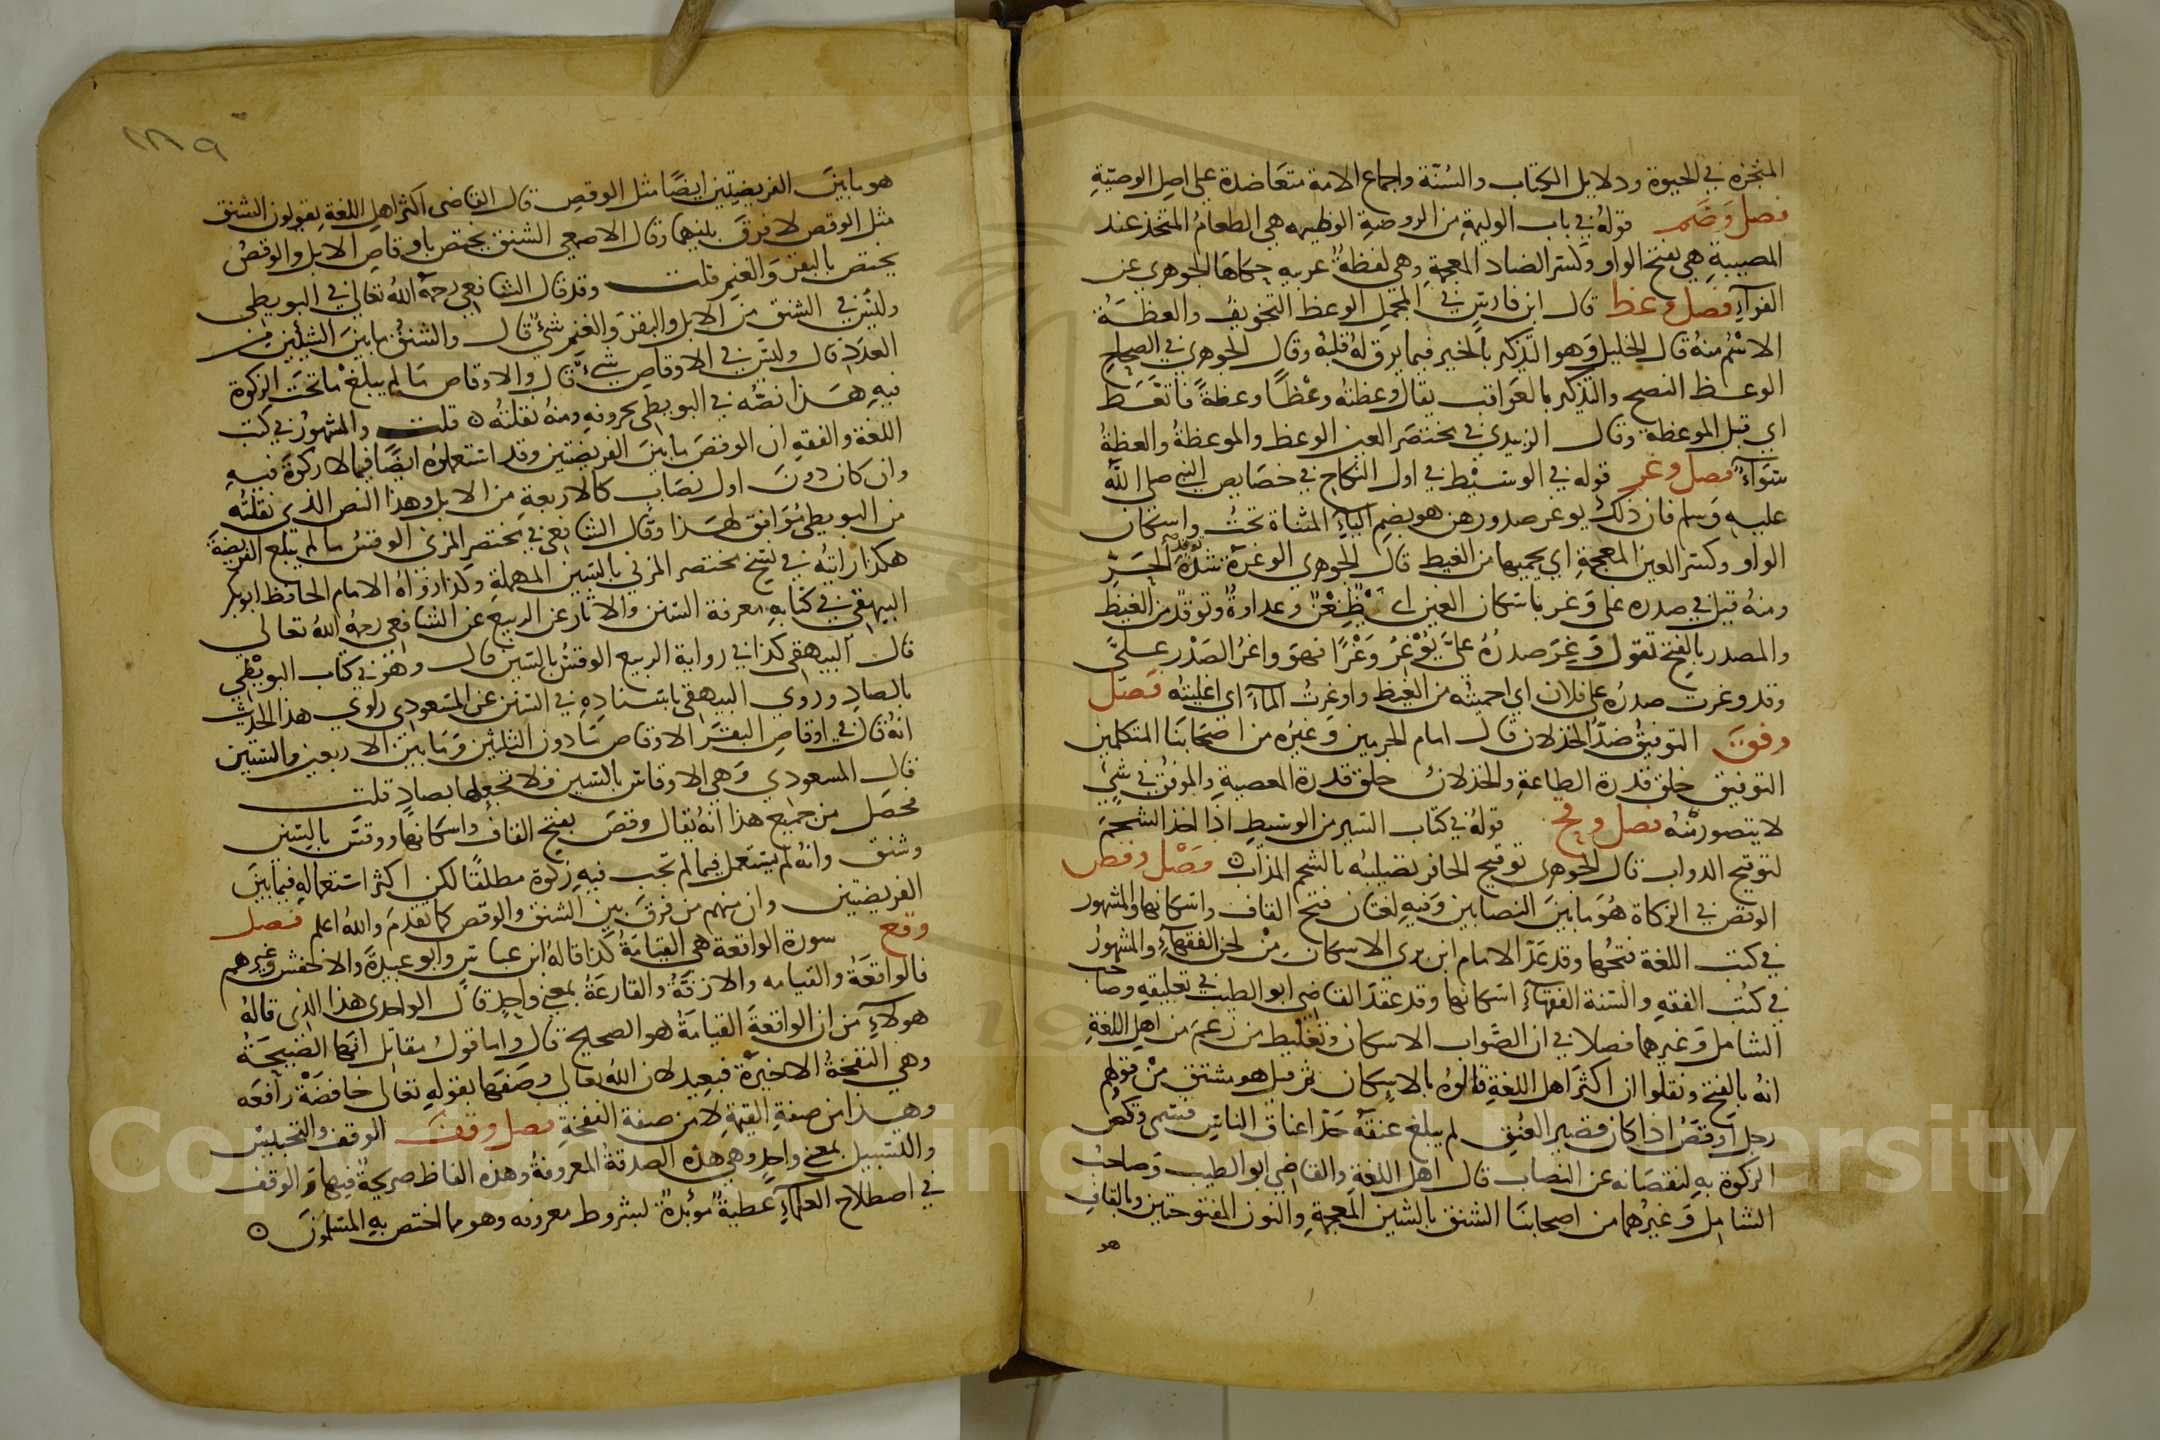 المنجزة في الحيوة ودلايل الكتاب والسنة واجماع الامة متعاضدة على اصل الوصية
فصل وضم قوله في باب الوليمة من الروضة الوظيمه هي الطعام المتخذ عند
المصيبة هي بفتح الواو وكسر الضاد المعجمة وهي لفظة عربيه حكاها الجوهري عن
الفراء فصل وعظ قال ابن فارس في المجمل الوعظ التخويف والعظة
الاسم منه قال الخليل وهو التذكير بالخير فيما يرق له قلبه وقال الجوهري في الصحاح
الوعظ النصح والتذكير بالعواقب يقال وعظته وعظا وعظة فاتعظ
اي قبل الموعظة وقال الزبيدي في مختصر العين الوعظ والموعظة والعظة
سواء فصل وغر قوله في الوسيط في اول النكاح في خصايص النبي صلى الله
عليه وسلم فان ذلك يوغر صدورهن هو بضم الياء المثناة تحت واسكان
الواو وكسر الغين المعجمة اي يحميها من الغيظ قال الجوهري الوغرة شدة توقد الحر
ومنه قيل في صدره على وغر باسكان الغين اي ضغن وعداوة وتوقد من الغيظ
والمصدر بالفتح تقول وغر صدره علي يوغر وغرا فهو واغر الصدر علي
وقد وغرت صدره على فلان اي احميته من الغيظ واوغرت الماء اي اغليته فصل
وفق التوفيق ضد الخذلان قال امام الحرمين وغيره من اصحابنا المتكلمين
التوفيق خلق قدرة الطاعة والخذلان خلق قدرة المعصية والموفق في شيء
لا يتصور منه فصل وقح قوله في كتاب السير من الوسيط اذا اخذ الشحم
لتوقيح الدواب قال الجوهري توقيح الحافر تصليبه بالشحم المذاب فصل وقص
الوقص في الزكاة هو ما بين النصابين وفيه لغتان فتح القاف واسكانها والمشهور
في كتب اللغة فتحها وقد عد الامام ابن بري الاسكان من لحن الفقهاء والمشهور
في كتب الفقه والسنة الفقهاء اسكانها وقد عقد القاضي ابو الطيب في تعليقه وصاحب
الشامل وغيرهما فصلا في ان الصواب الاسكان وتغليط من زعم من اهل اللغة
انه بالفتح ونقلوا ان اكثر اهل اللغة قالوه بالاسكان ثم قيل هو مشتق من قولهم
رجل اوقص اذا كان قصير العنق لم يبلغ عنقه حد اعناق الناس فسمي وقص
الزكوة به لنقصانه عن النصاب قال اهل اللغة والقاضي ابو الطيب وصاحب
الشامل وغيرهما من اصحابنا الشنق بالشين المعجمة والنون المفتوحتين وبالقاف
هو
١٨٩
هو ما بين الفريضتين ايضا مثل الوقص قال القاضي اكثر اهل اللغة يقولون الشنق
مثل الوقص لا فرق بينهما وقال الاصمعي الشنق يختص باوقاص الابل والوقص
يختص بالبقر والغنم قلت وقد قال الشافعي رحمه الله تعالى في البويطي
وليس في الشنق من الابل والبقر والغنم شيء قال والشنق ما بين الشيئين من
العدد قال وليس في الاوقاص شيء قال والاوقاص ما لم يبلغ ما تجب الزكوة
فيه هذا نصه في البويطي بحروفه ومنه نقلته قلت والمشهور في كتب
اللغة والفقه ان الوقص ما بين الفريضتين وقد استعملوه ايضا فيما لا زكوة فيه
وان كان دون اول نصاب كالاربعة من الابل وهذا النص الذي نقلته
من البويطي موافق لهذا وقال الشافعي في مختصر المزني الوقس ما لم يبلغ الفريضة
هكذا رايته في نسخ مختصر المزني بالسين المهملة وكذا رواه الامام الحافظ ابو بكر
البيهقي في كتابه معرفة السنن والاثار عن الربيع عن الشافعي رحمه الله تعالى
قال البيهقي كذا في رواية الربيع الوقس بالسين قال وهو في كتاب البويطي
بالصاد وروى البيهقي باسناده في السنن عن المسعودي راوي هذا الحديث
انه قال في اوقاص البقر الاوقاص ما دون الثلثين وما بين الاربعين والستين
قال المسعودي وهي الاوقاس بالسين فلا تجعلها بصاد قلت
فحصل من جميع هذا انه يقال وقص بفتح القاف واسكانها ووقس بالسين
وشنق وانه لم يستعمل فيما لم تجب فيه زكوة مطلقا لكن اكثر استعماله فيما بين
الفريضتين وان منهم من فرق بين الشنق والوقص كما تقدم والله اعلم فصل
وقع سورة الواقعة هي القيامة كذا قاله ابن عباس وابو عبيدة والاخفش وغيرهم
فالواقعة والقيامه والازفة والقارعة بمعنى واحد قال الواحدي هذا الذي قاله
هولاء من ان الواقعة القيامة هو الصحيح قال واما قول مقاتل انها الصيحة
وهي النفخة الاخيرة فبعيد لان الله تعالى وصفها بقوله تعالى خافضة رافعه
وهذا من صفة القيمة لا من صفة النفخة فصل وقف الوقف والتحبيس
والتسبيل بمعنى واحد وهي هذه الصدقة المعروفة وهذه الفاظ صريحة فيها و الوقف
في اصطلاح العلماء عطية مؤبدة بشروط معروفه وهو مما اختص به المسلمون
Copyright © King Saud University